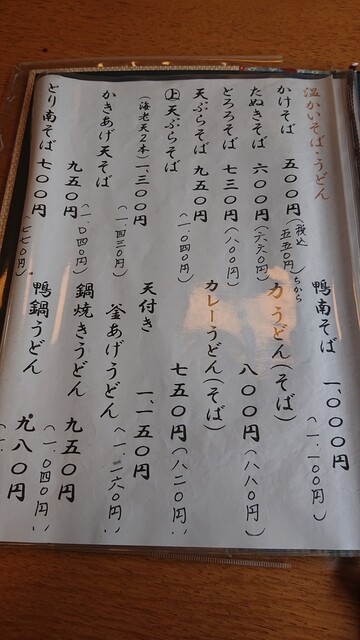 温かいそば・うどん
かけそば 五〇〇円(税込五五〇円)
たぬきそば 六〇〇円(六六〇円)
とろろそば 七三〇円(八〇〇円)
天ぷらそば 九五〇円(一、〇四〇円)
㊤天ぷらそば
(海老天2本)一、三〇〇円(一、四三〇円)
かきあげ天そば
九五〇円(一、〇四〇円)
とり南そば 七〇〇円(七七〇円)
鴨南そば 一、〇〇〇円(一、一〇〇円)
力うどん(そば) ちから
八〇〇円(八八〇円)
カレーうどん(そば)
七五〇円(八二〇円)
天付き
釜あげうどん 一、一五〇円(一、二六〇円)
鍋焼きうどん 九五〇円(一、〇四〇円)
鴨鍋うどん 九八〇円